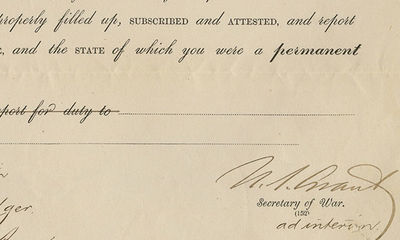 properly filled up, SUBSCRIBED and ATTESTED, and report
, and the STATE of which you were a permanent
port for duty to
U. S. Grant
Secretary of War.
(152)
ad interim.